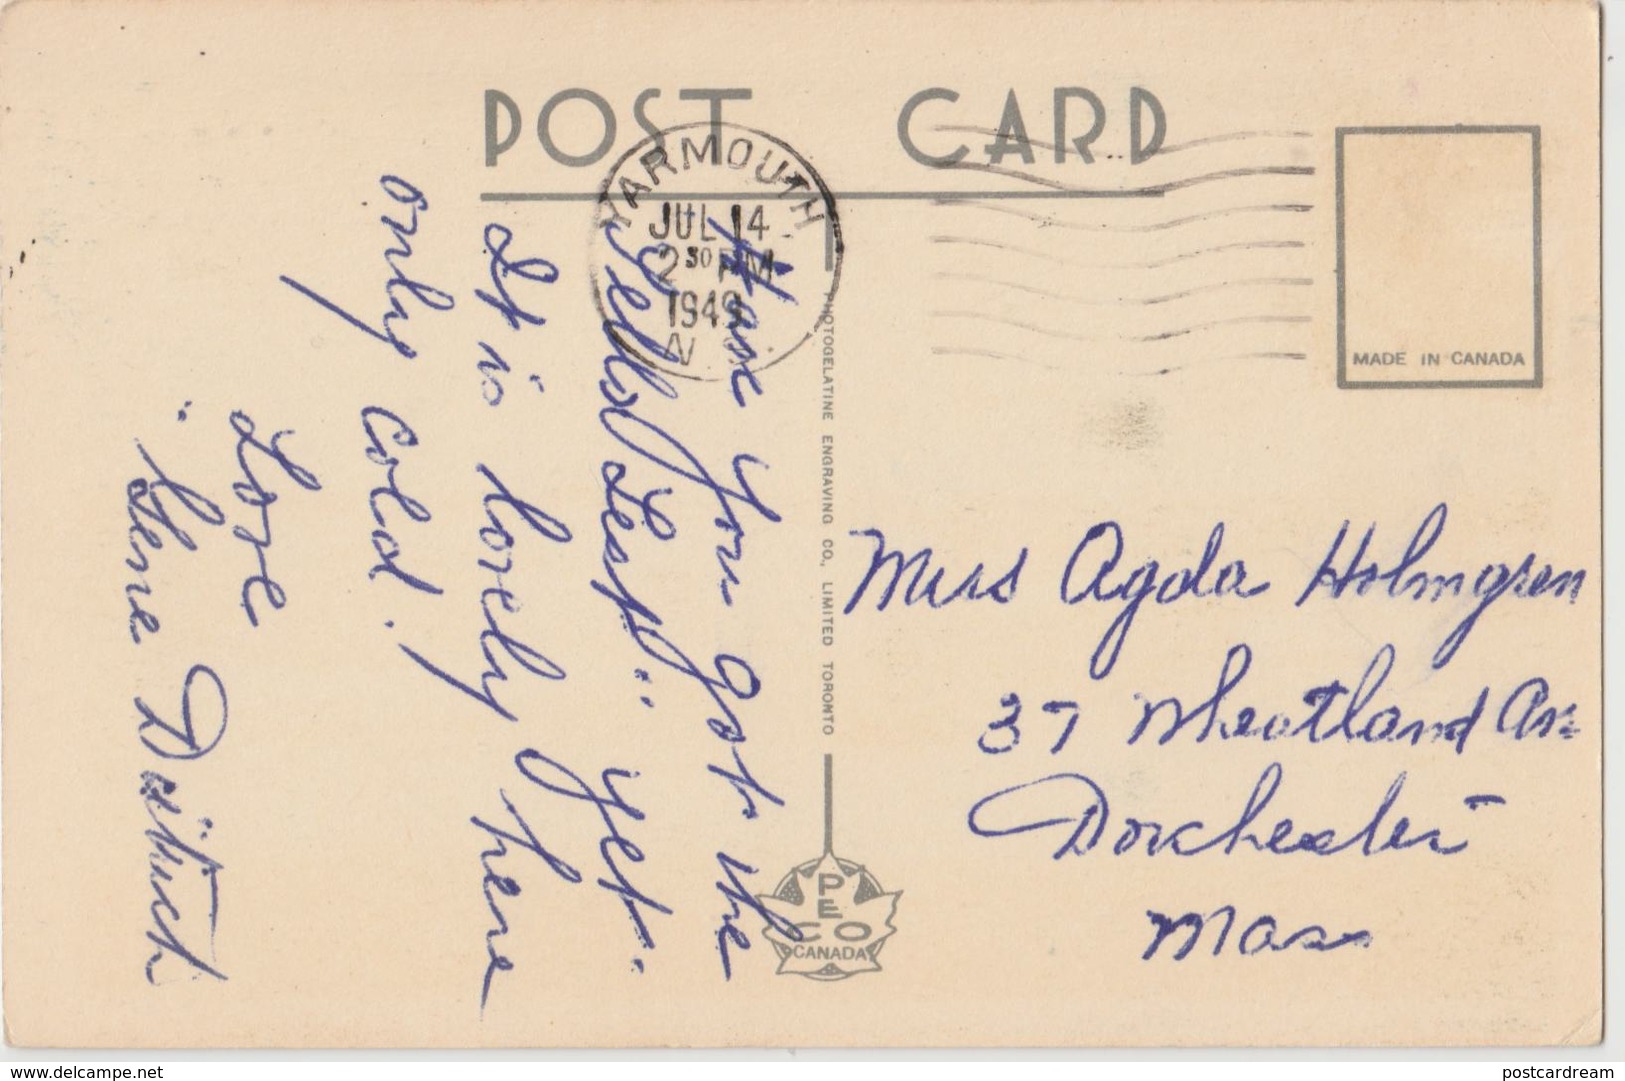 POST CARD
YARMOUTH
JUL 14
2 30 PM
1949
N
MADE IN CANADA
PHOTOGELATINE ENGRAVING CO., LIMITED TORONTO
PECO
CANADA
Have you got the
yet.
It is lovely here
only cold!
Love
Miss Agda Holmgren
37 Wheatland Av
Dorchester
Mass
delcampe.net
postcardream